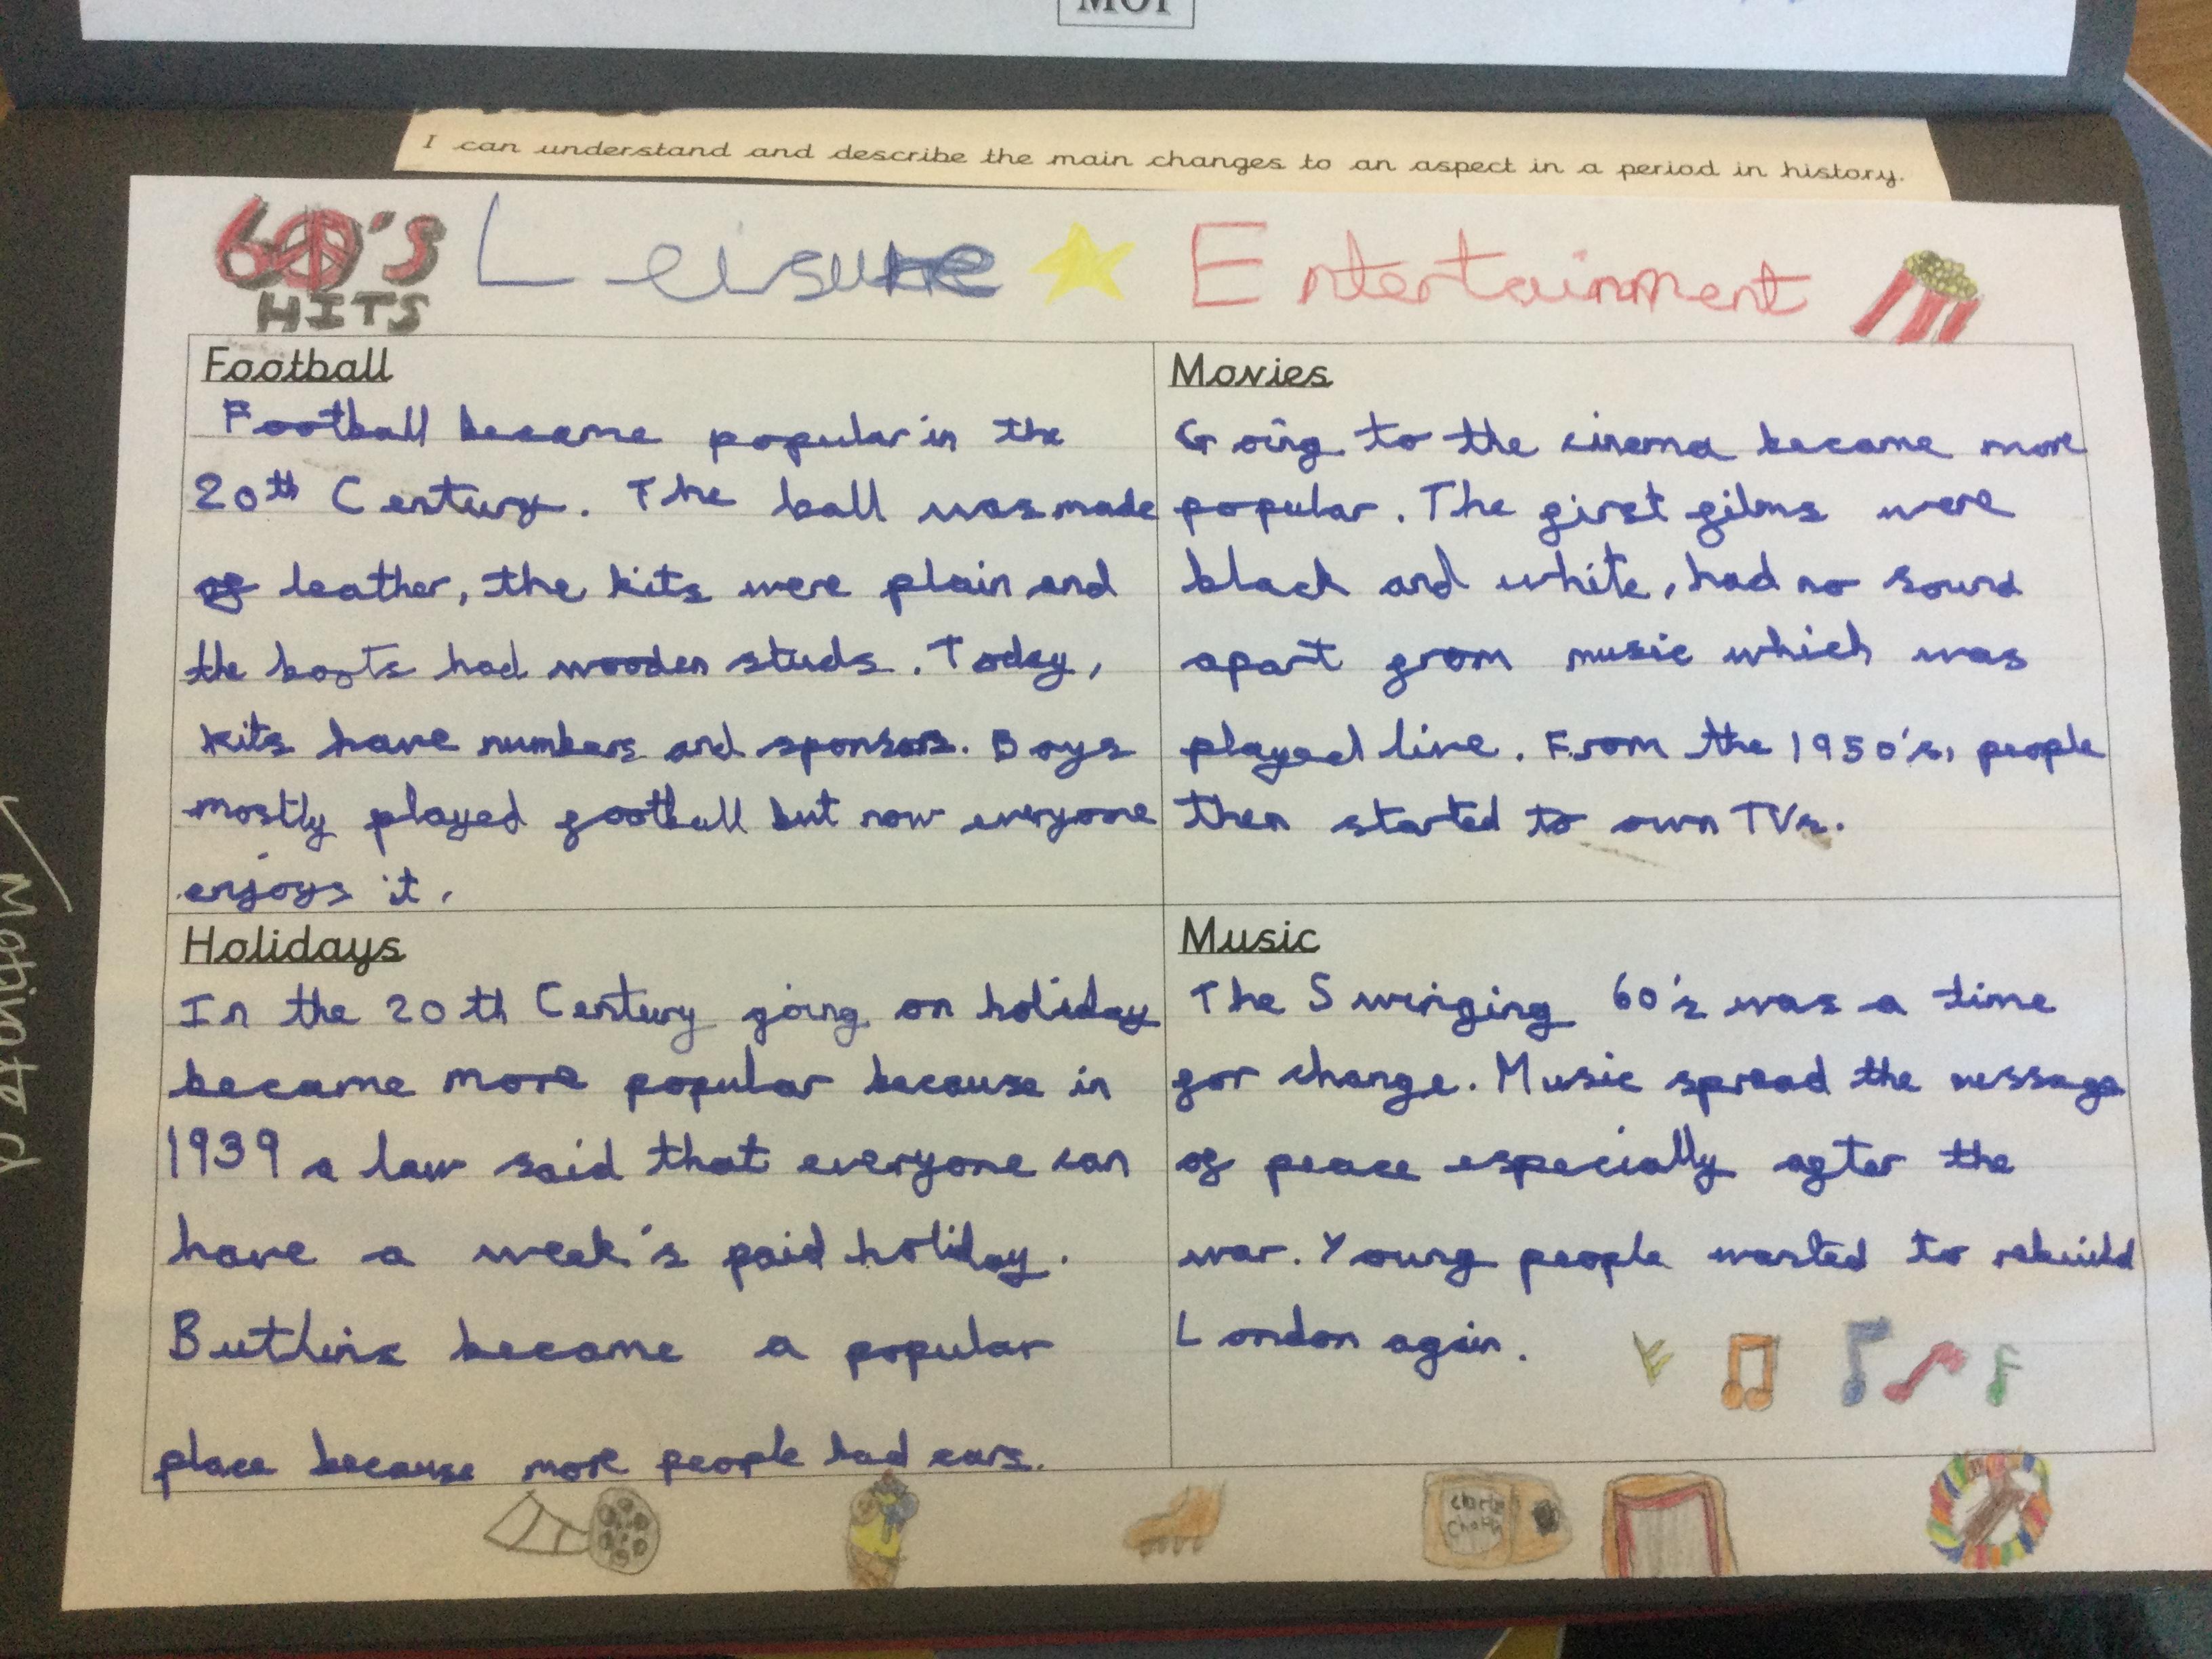 MOT
I can understand and describe the main changes to an aspect in a period in history.
60's
HITS
Leisure Entertainment
Football
Football became popular in the
20th Century. The ball was made
of leather, the kits were plain and
the boots had wooden studs. Today,
kits have numbers and sponsors. Boys
mostly played football but now everyone
enjoys it.
Movies
Going to the cinema became more
popular. The first films were
black and white, had no sound
apart from music which was
played live. From the 1950's, people
then started to own TVs.
Holidays
In the 20th Century going on holiday
became more popular because in
1939 a law said that everyone can
have a week's paid holiday.
Butlins became a popular
place because more people had cars.
Music
The Swinging 60's was a time
for change. Music spread the message
of peace especially after the
war. Young people wanted to rebuild
London again.
Charlie